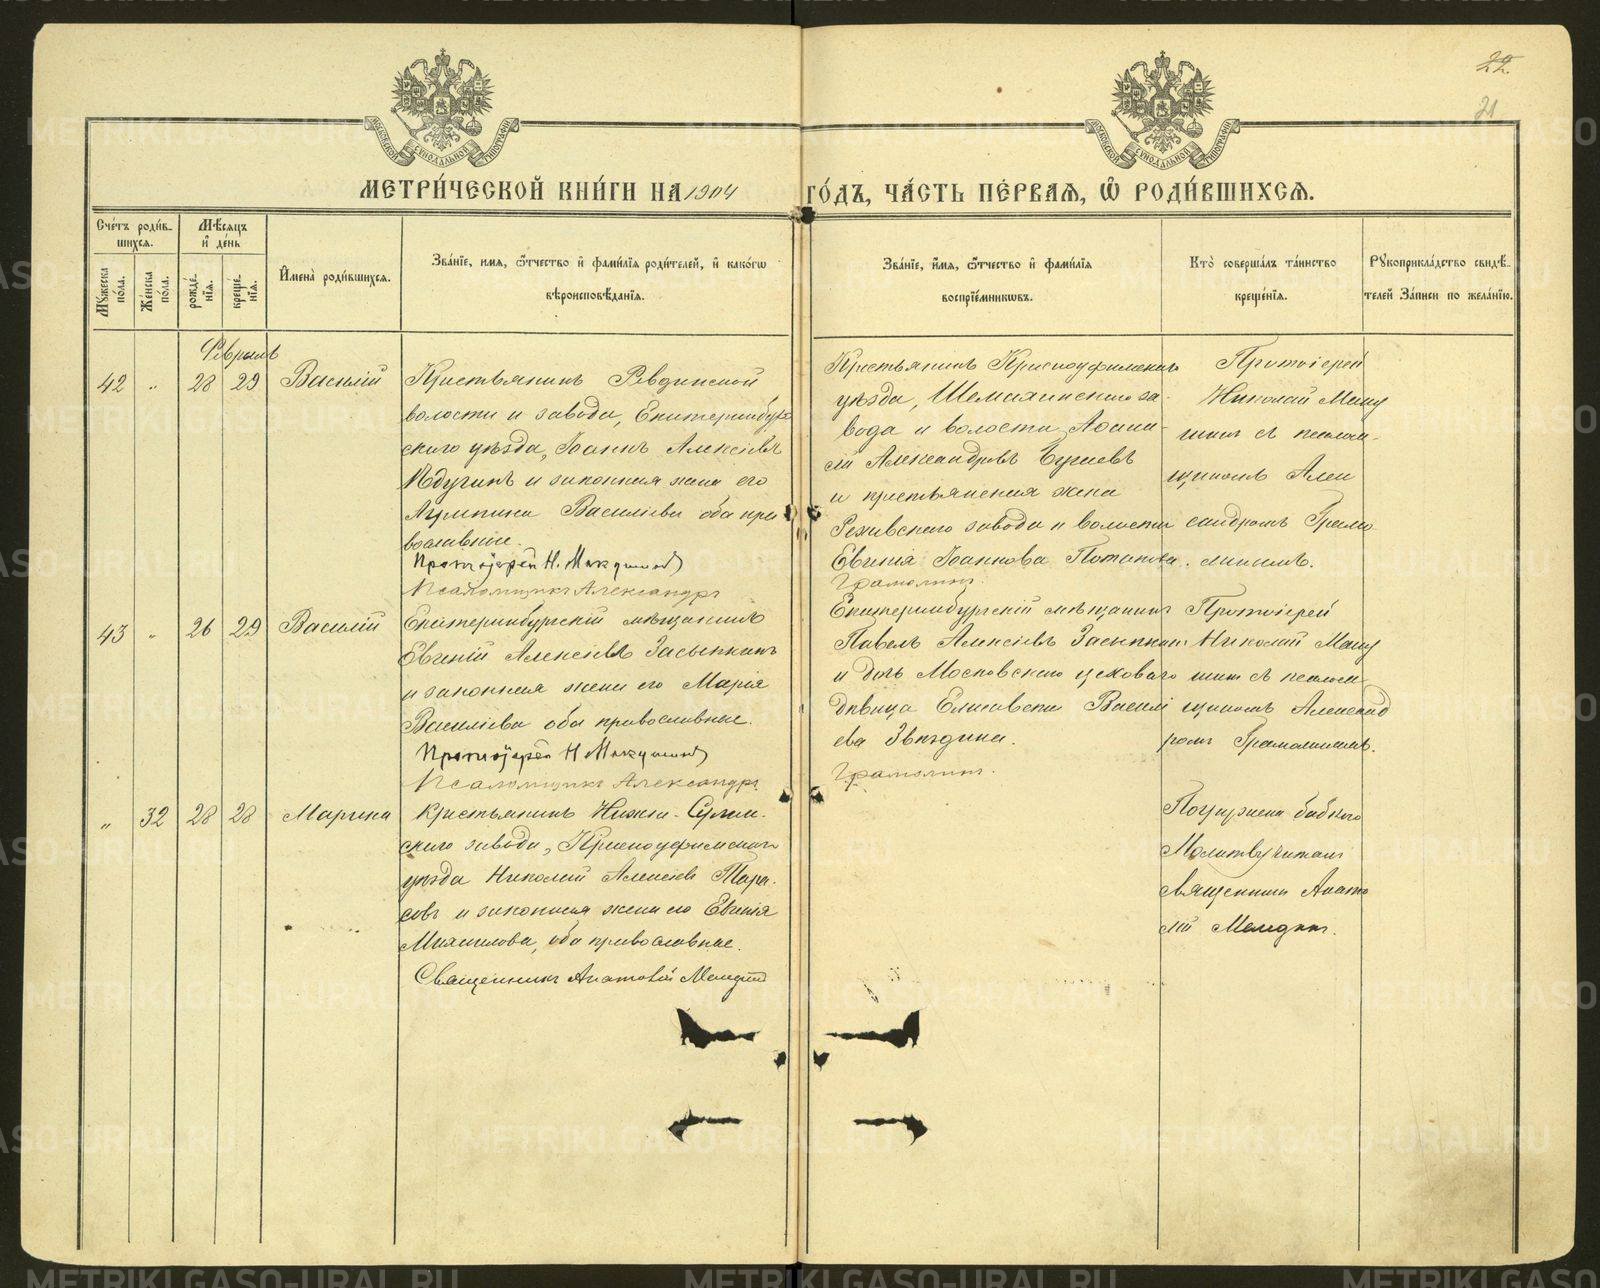 22.
21
МОСКОВСКОЙ СѴНОДАЛЬНОЙ ТИПОГРАФІИ
МОСКОВСКОЙ СѴНОДАЛЬНОЙ ТИПОГРАФІИ
МЕТРИ́ЧЕСКОЙ КНИ́ГИ НА 1904 ГО́ДЪ, ЧА́СТЬ ПЕ́РВАЯ, Ѡ РОДИ́ВШИХСЯ.
Сче́тъ роди́в-
шихся.
Мѣ́сяцъ
и де́нь
Му́жеска
по́ла.
Же́нска
пола.
рожде́-
нїя.
креще́-
нїя.
Имена̀ роди́вшихся.
Зва́нїе, имя, ѻ́тчество и фами́лїя роди́телей, и како́гѡ
вѣроисповѣ́данїя.
Зва́нїе, и́мя, ѻ́тчество и фами́лїя
воспрїе́мниковъ.
Кто̀ соверша́лъ та́инство
креще́нїя.
Рꙋкоприкла́дство свидѣ́-
телей за́писи по жела́нїю.
Февраль
42 „ 28 29 Василій
Крестьянинъ Ревдинской
волости и завода, Екатеринбург-
скаго уѣзда, Іоаннъ Алексѣевъ
и законная жена его
Василіева оба пра-
вославные.
Протоіерей Н. Макушинъ
Псаломщикъ Александръ
Крестьянинъ Красноуфимскаго
уѣзда, Шемахинскаго за-
вода и волости
Александровъ
и крестьянская жена
Режевскаго завода и волости
Евгенія Іоаннова Потапова.
Грамолинъ.
Протоіерей
Николай Маку
шинъ съ псалом-
щикомъ Алек
сандромъ Грамо
линымъ.
43 „ 26 29 Василій
Екатеринбургскій мѣщанинъ
Евгеній Алексѣевъ Засыпкинъ
и законная жена его Марія
Василіева оба православные.
Протоіерей Н Макушинъ
Псаломщикъ Александръ
Екатеринбургскій мѣщанинъ
Павелъ Алексѣевъ Засыпкинъ
и дочь Московскаго цеховаго
дѣвица Елисавета Василі
ева Звѣздина.
Грамолинъ.
Протоіерей
Николай Маку
шинъ съ псалом
щикомъ Александ
ромъ Грамолинымъ.
„ 32 28 28 Марина
Крестьянинъ Нижне-Сергин-
скаго завода, Красноуфимскаго
уѣзда Николай Алексѣевъ Тара-
совъ и законная жена его Евгенія
Михаилова, оба православные.
Священникъ Анатолій
Погружена бабкою
Молитву читалъ
священникъ Анато
лій
METRIKI.GASO-URAL.RU